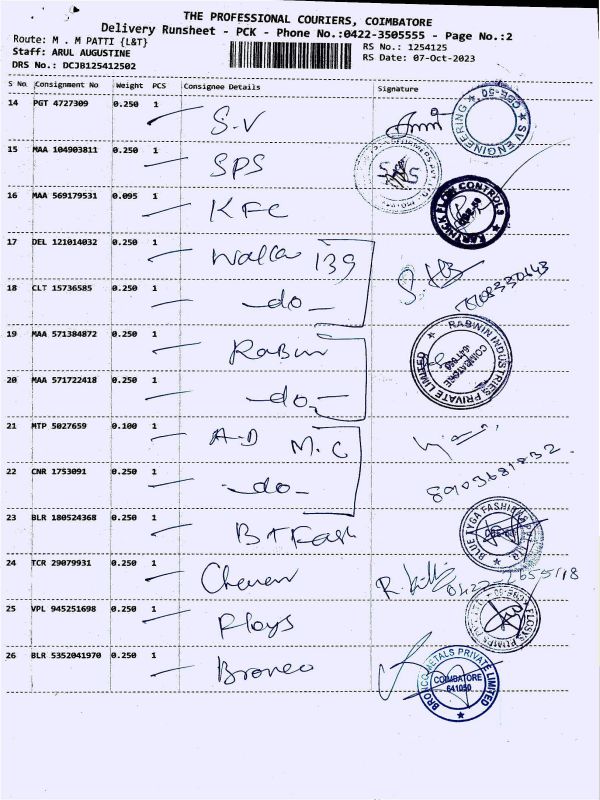 THE PROFESSIONAL COURIERS, COIMBATORE
Delivery Runsheet - PCK - Phone No.:0422-3505555 - Page No.:2
Route: M . M PATTI {L&T}
RS No.: 1254125
Staff: ARUL AUGUSTINE
RS Date: 07-Oct-2023
DRS No.: DCJB125412502
S No. Consignment No Weight PCS Consignee Details Signature
14 PGT 4727309 0.250 1 S.V
SV ENGINEERING CBE-50
15 MAA 104903811 0.250 1 SPS
16 MAA 569179531 0.095 1 KFC
KARTHICK FLOW CONTROLS
17 DEL 121014032 0.250 1 Walla 139
18 CLT 15736585 0.250 1 -do-
19 MAA 571384872 0.250 1 Rabin
RABWIN INDUSTRIES PRIVATE LIMITED COIMBATORE
20 MAA 571722418 0.250 1 -do-
21 MTP 5027659 0.100 1 A-D M.C
22 CNR 1753091 0.250 1 -do-
8903681832
23 BLR 180524368 0.250 1 BTFash
BLUE AYGA FASHIONS
24 TCR 29079931 0.250 1
25 VPL 945251698 0.250 1 Ploys
26 BLR 5352041970 0.250 1 Bronco
BRONCO METALS PRIVATE LIMITED COIMBATORE 641050